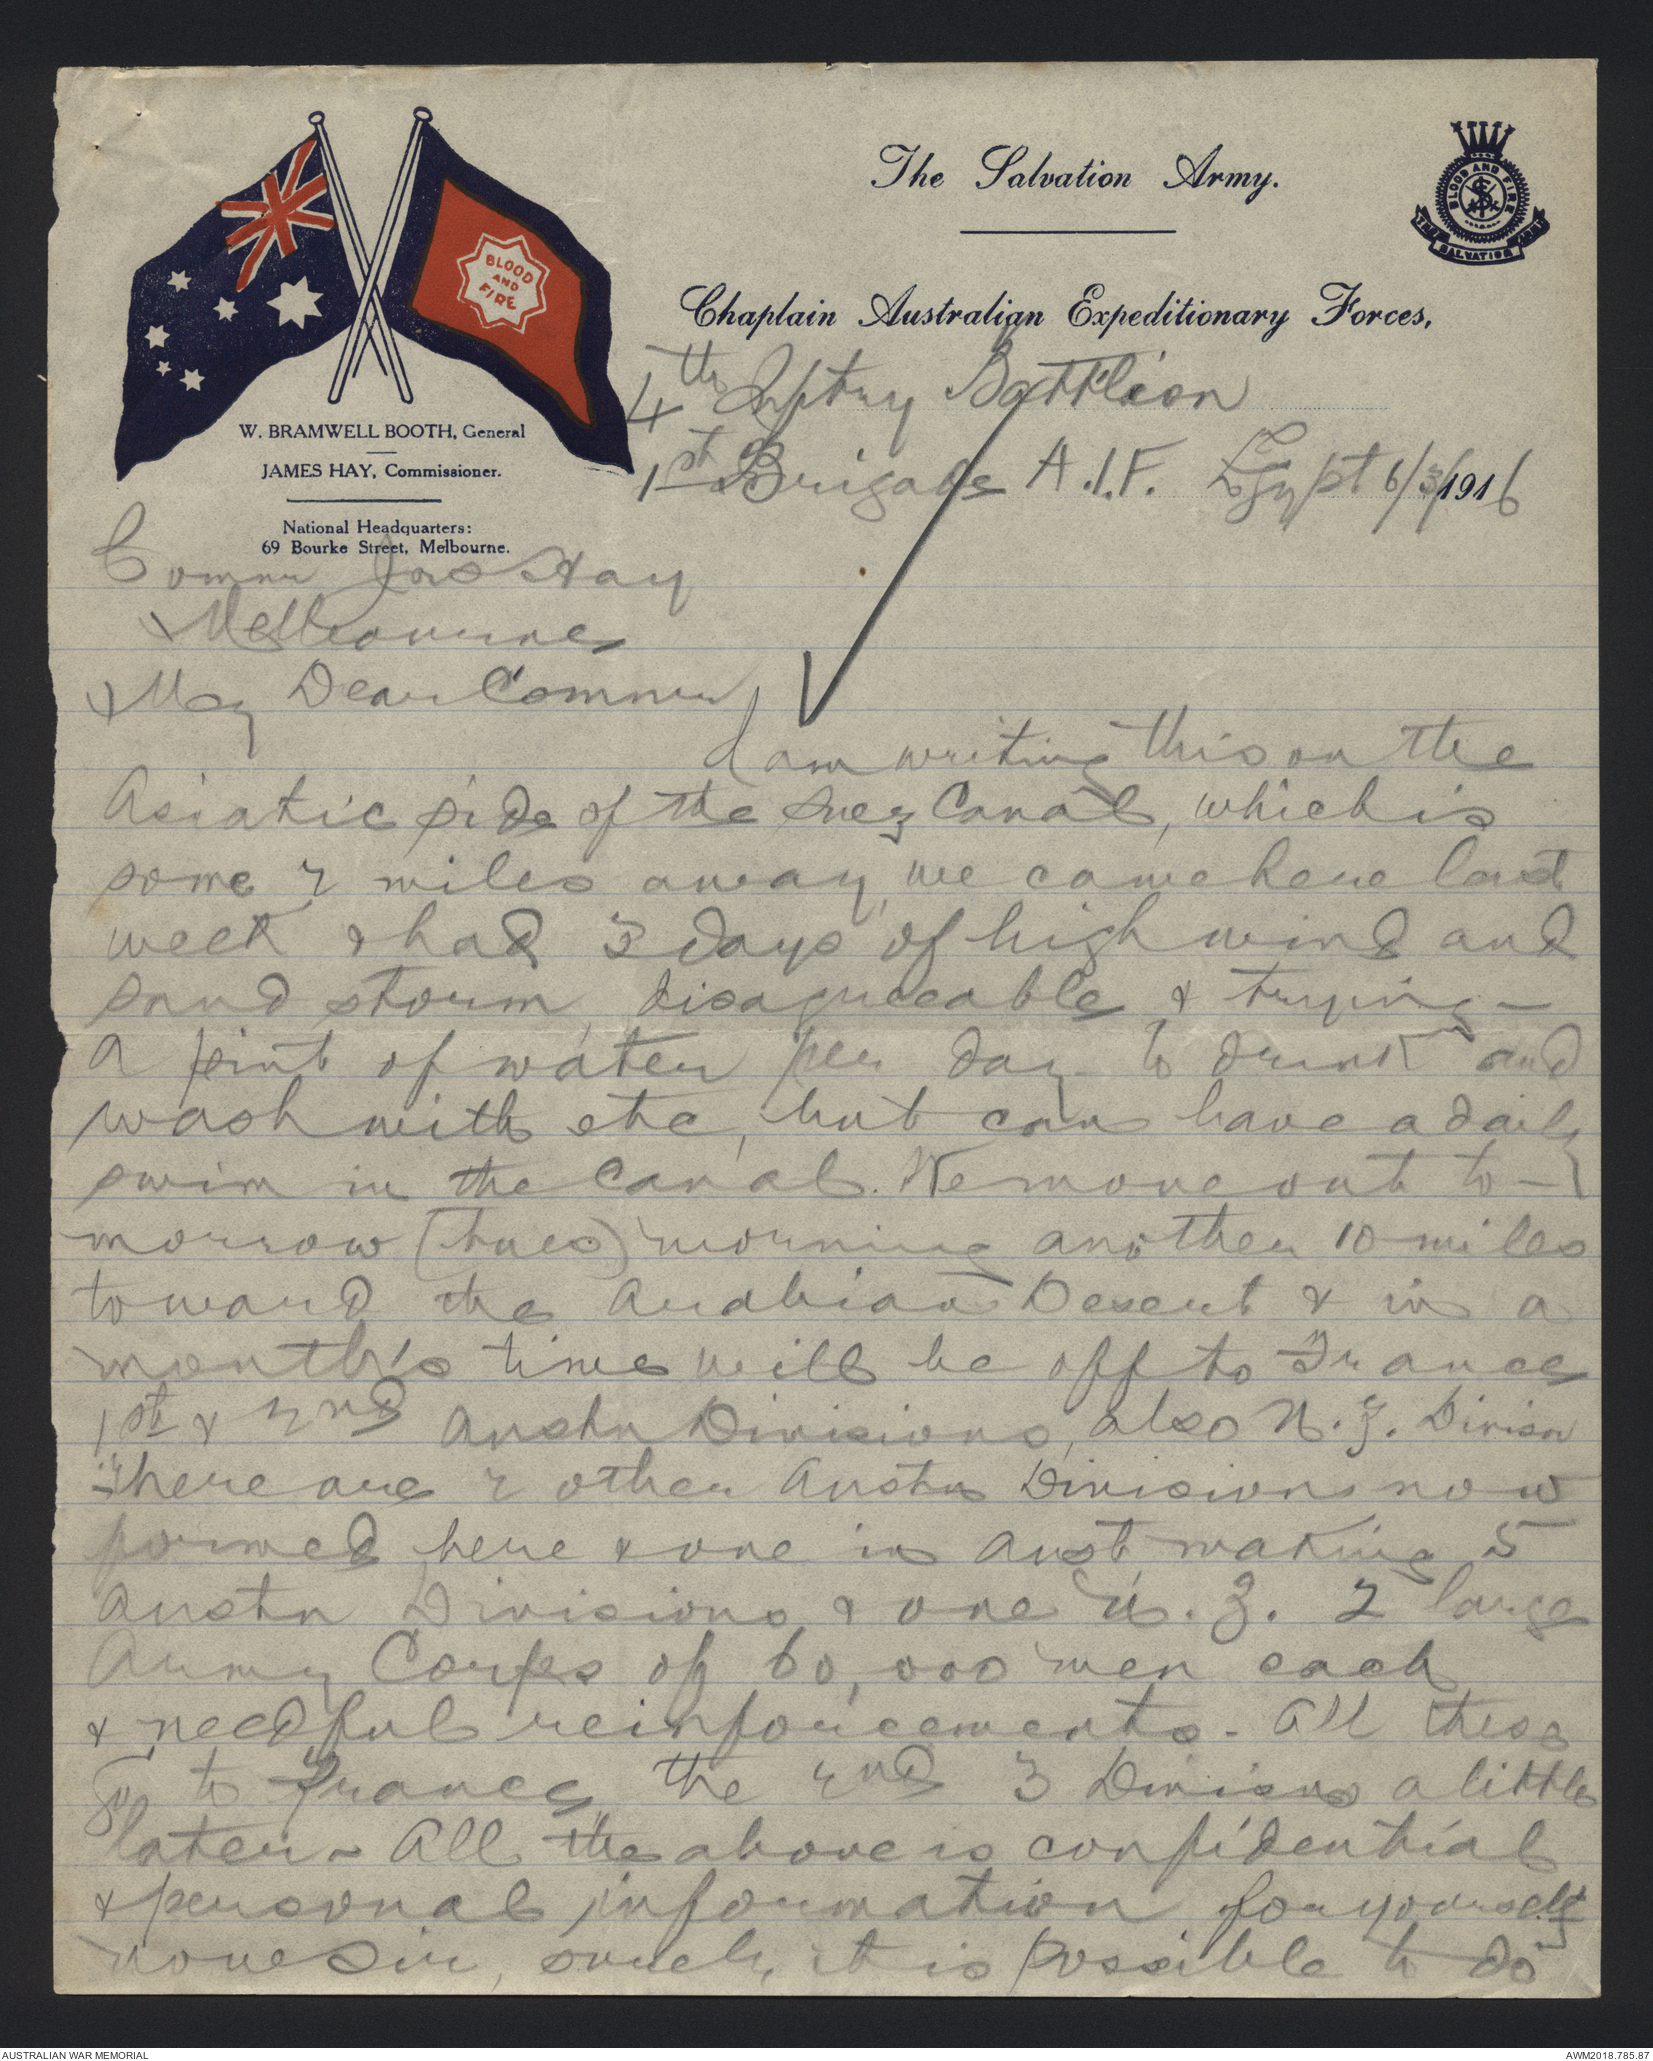 The Salvation Army.
BLOOD AND FIRE
THE SALVATION ARMY
BLOOD
AND
FIRE
Chaplain Australian Expeditionary Forces,
4th Inftry Battlion
1st Brigade A.I.F. Egypt 6/3/1916
W. BRAMWELL BOOTH, General
JAMES HAY, Commissioner.
National Headquarters:
69 Bourke Street, Melbourne.
Commr Jas Hay
Melbourne
My Dear Commr
I am writing this on the
Asiatic side of the Suez Canal, which is
some 2 miles away, we came here last
week & had 3 days of high wind and
sand storm, disagreeable & trying -
A pint of water per day to drink and
wash with etc, but can have a daily
swim in the Canal. We move out to-
morrow (tues) morning another 10 miles
toward the Arabian Desert & in a
month's time will be off to France
1st & 2nd Austn Divisions, also N.Z. Divisn
There are 2 other Austn Divisions now
formed here & one in Aust making 5
Austn Divisions & one N.Z. 2 large
Army Corps of 60,000 men each
& needful reinforcements - All these
go to France, the 2nd 3 Divisns a little
later - All the above is confidential
& personal information for yourself
now Sir, surely it is possible to do
AUSTRALIAN WAR MEMORIAL
AWM2018.785.87